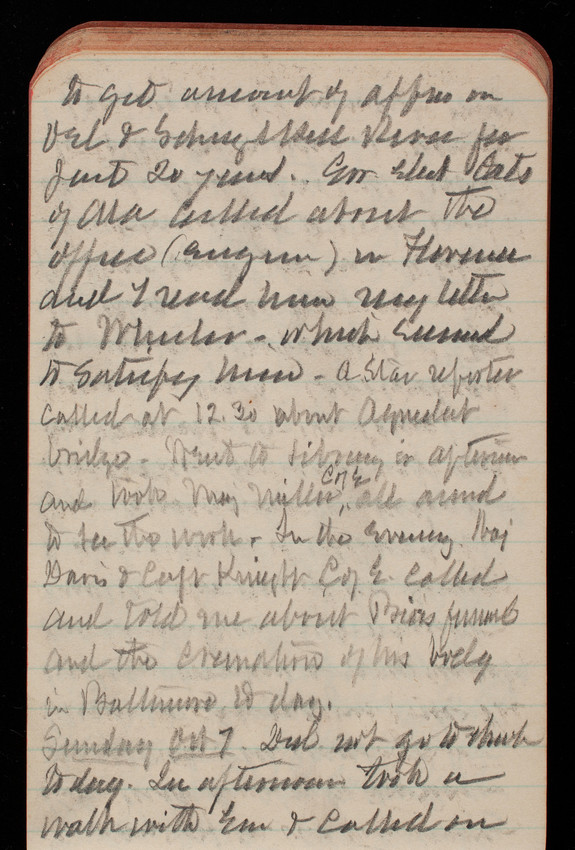 to get amount of affrs on
Del & Schuylkill River for
past 20 years. Gov Elect Oats
of Ala called about the
office (engrn) in Florence
and I read him my letter
to Wheeler - which seemed
to satisfy him - A Star reporter
called at 12.30 about Aqueduct
bridge. Went to Library in afternoon
and took Maj Miller, C of E all around
to see the work. In the evening Maj
Davis & Capt Knight C of E called
and told me about funeral
and the cremation of his body
in Baltimore to day.
Sunday Oct 7. Did not go to church
today. In afternoon took a
walk with Em & called on